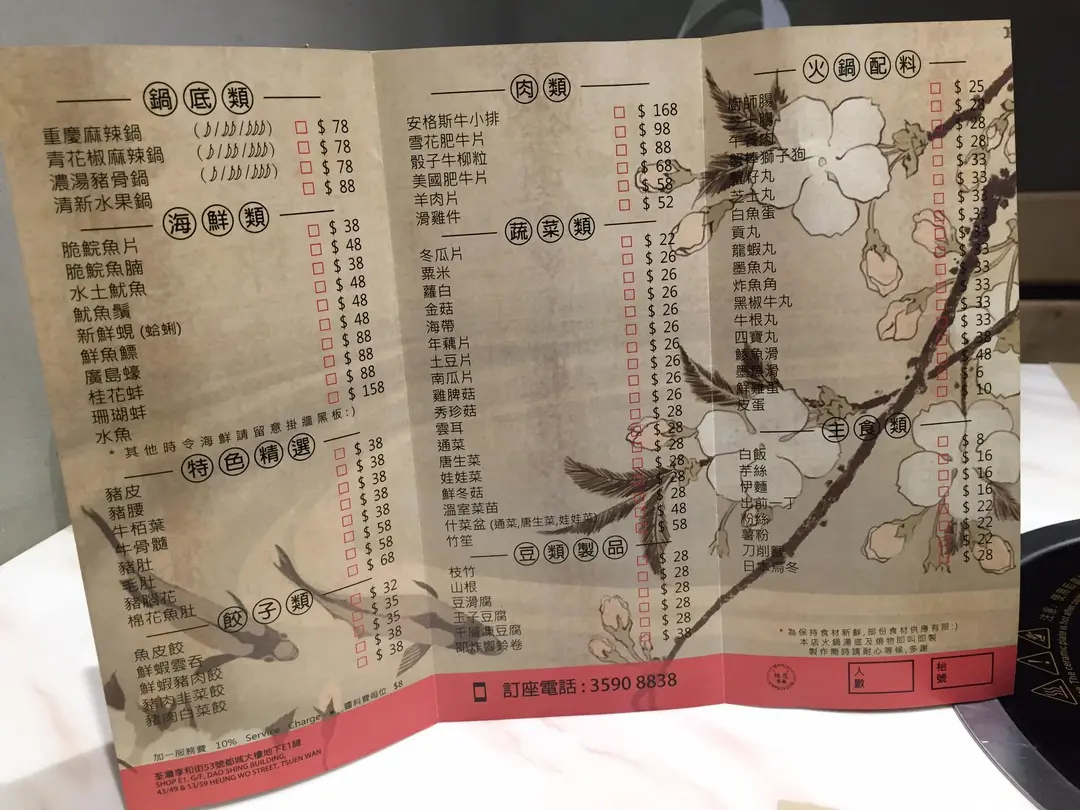 鍋底類
重慶麻辣鍋 $ 78
青花椒麻辣鍋 $ 78
濃湯豬骨鍋 $ 78
清新水果鍋 $ 88
海鮮類
脆鯇魚片 $ 38
脆鯇魚腩 $ 48
水土魷魚 $ 38
魷魚鬚 $ 48
新鮮蜆 (蛤蜊) $ 48
鮮魚鰾 $ 48
廣島蠔 $ 88
桂花蚌 $ 88
珊瑚蚌 $ 88
水魚 $ 158
* 其他時令海鮮請留意掛牆黑板:)
特色精選
豬皮 $ 38
豬腰 $ 38
牛栢葉 $ 38
牛骨髓 $ 38
豬肚 $ 38
毛肚 $ 58
豬腦花 $ 58
棉花魚肚 $ 68
餃子類
魚皮餃 $ 32
鮮蝦雲吞 $ 35
鮮蝦豬肉餃 $ 35
豬肉韭菜餃 $ 38
豬肉白菜餃 $ 38
加一服務費 10% Service Charge 醬料費每位 $8
荃灣享和街53號都城大樓地下E1舖
SHOP E1, G/F, DAO SHING BUILDING,
43/49 & 53/59 HEUNG WO STREET, TSUEN WAN
肉類
安格斯牛小排 $ 168
雪花肥牛片 $ 98
骰子牛柳粒 $ 88
美國肥牛片 $ 68
羊肉片 $ 58
滑雞件 $ 52
蔬菜類
冬瓜片 $ 22
粟米 $ 26
蘿白 $ 26
金菇 $ 26
海帶 $ 26
年藕片 $ 26
土豆片 $ 26
南瓜片 $ 26
雞脾菇 $ 26
秀珍菇 $ 28
雲耳 $ 28
通菜 $ 28
唐生菜 $ 28
娃娃菜 $ 28
鮮冬菇 $ 28
溫室菜苗
什菜盆 (通菜,唐生菜,娃娃菜) $ 48
竹笙 $ 58
豆類製品
枝竹 $ 28
山根 $ 28
豆滑腐 $ 28
玉子豆腐 $ 28
千層凍豆腐 $ 28
即炸響鈴卷 $ 38
訂座電話 : 3590 8838
火鍋配料
廚師腸 $ 25
$ 23
$ 28
$ 28
獅子狗 $ 33
$ 33
芝士丸 $ 33
白魚蛋 $ 33
貢丸 $ 33
龍蝦丸 $ 33
墨魚丸 $ 33
炸魚角 $ 33
黑椒牛丸 $ 33
牛根丸 $ 33
四寶丸 $ 33
鯪魚滑 $ 38
墨魚滑 $ 48
鮮雞蛋 $ 6
皮蛋 $ 10
主食類
白飯 $ 8
芋絲 $ 16
伊麵 $ 16
出前一丁 $ 16
粉絲 $ 22
薯粉 $ 22
刀削麵 $ 22
日本烏冬 $ 28
* 為保持食材新鮮,部份食材供應有限:)
本店火鍋湯底及燒物即叫即製
製作需時請耐心等候,多謝
人數
枱號